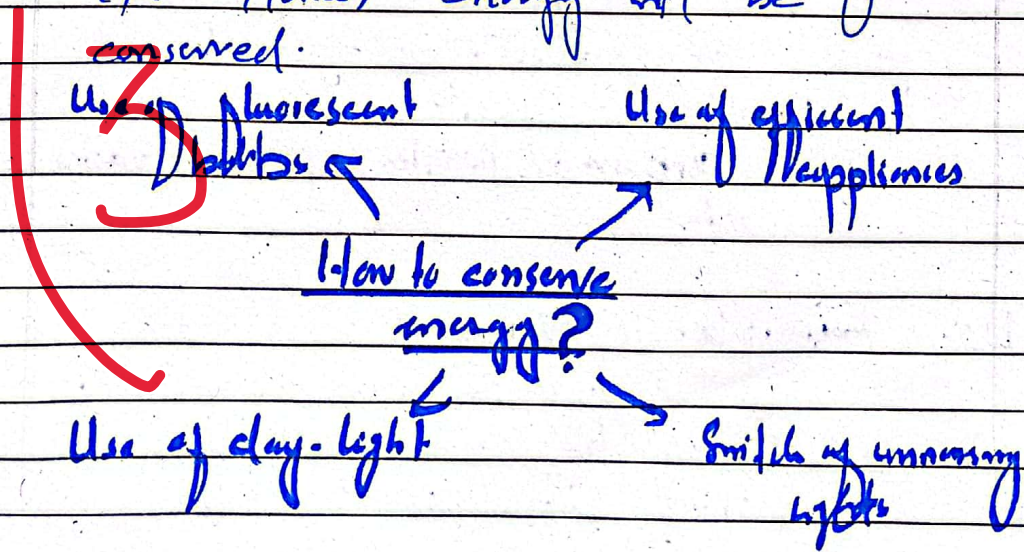 energy will be
conserved.
3
Use of fluorescent
bulbs
Use of efficient
appliances
How to conserve
energy?
Use of day-light
Switch of unnecessary
lights